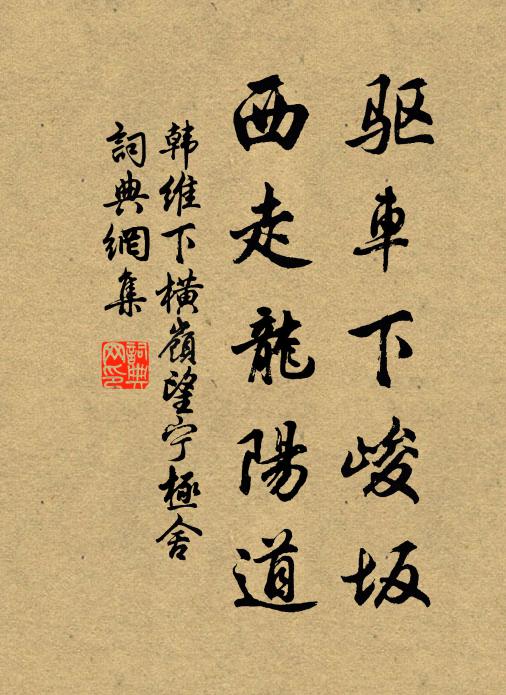 驱車下峻坂
西走龍陽道
韩維下橫嶺望宁極舍
詞典網集
詞典网印